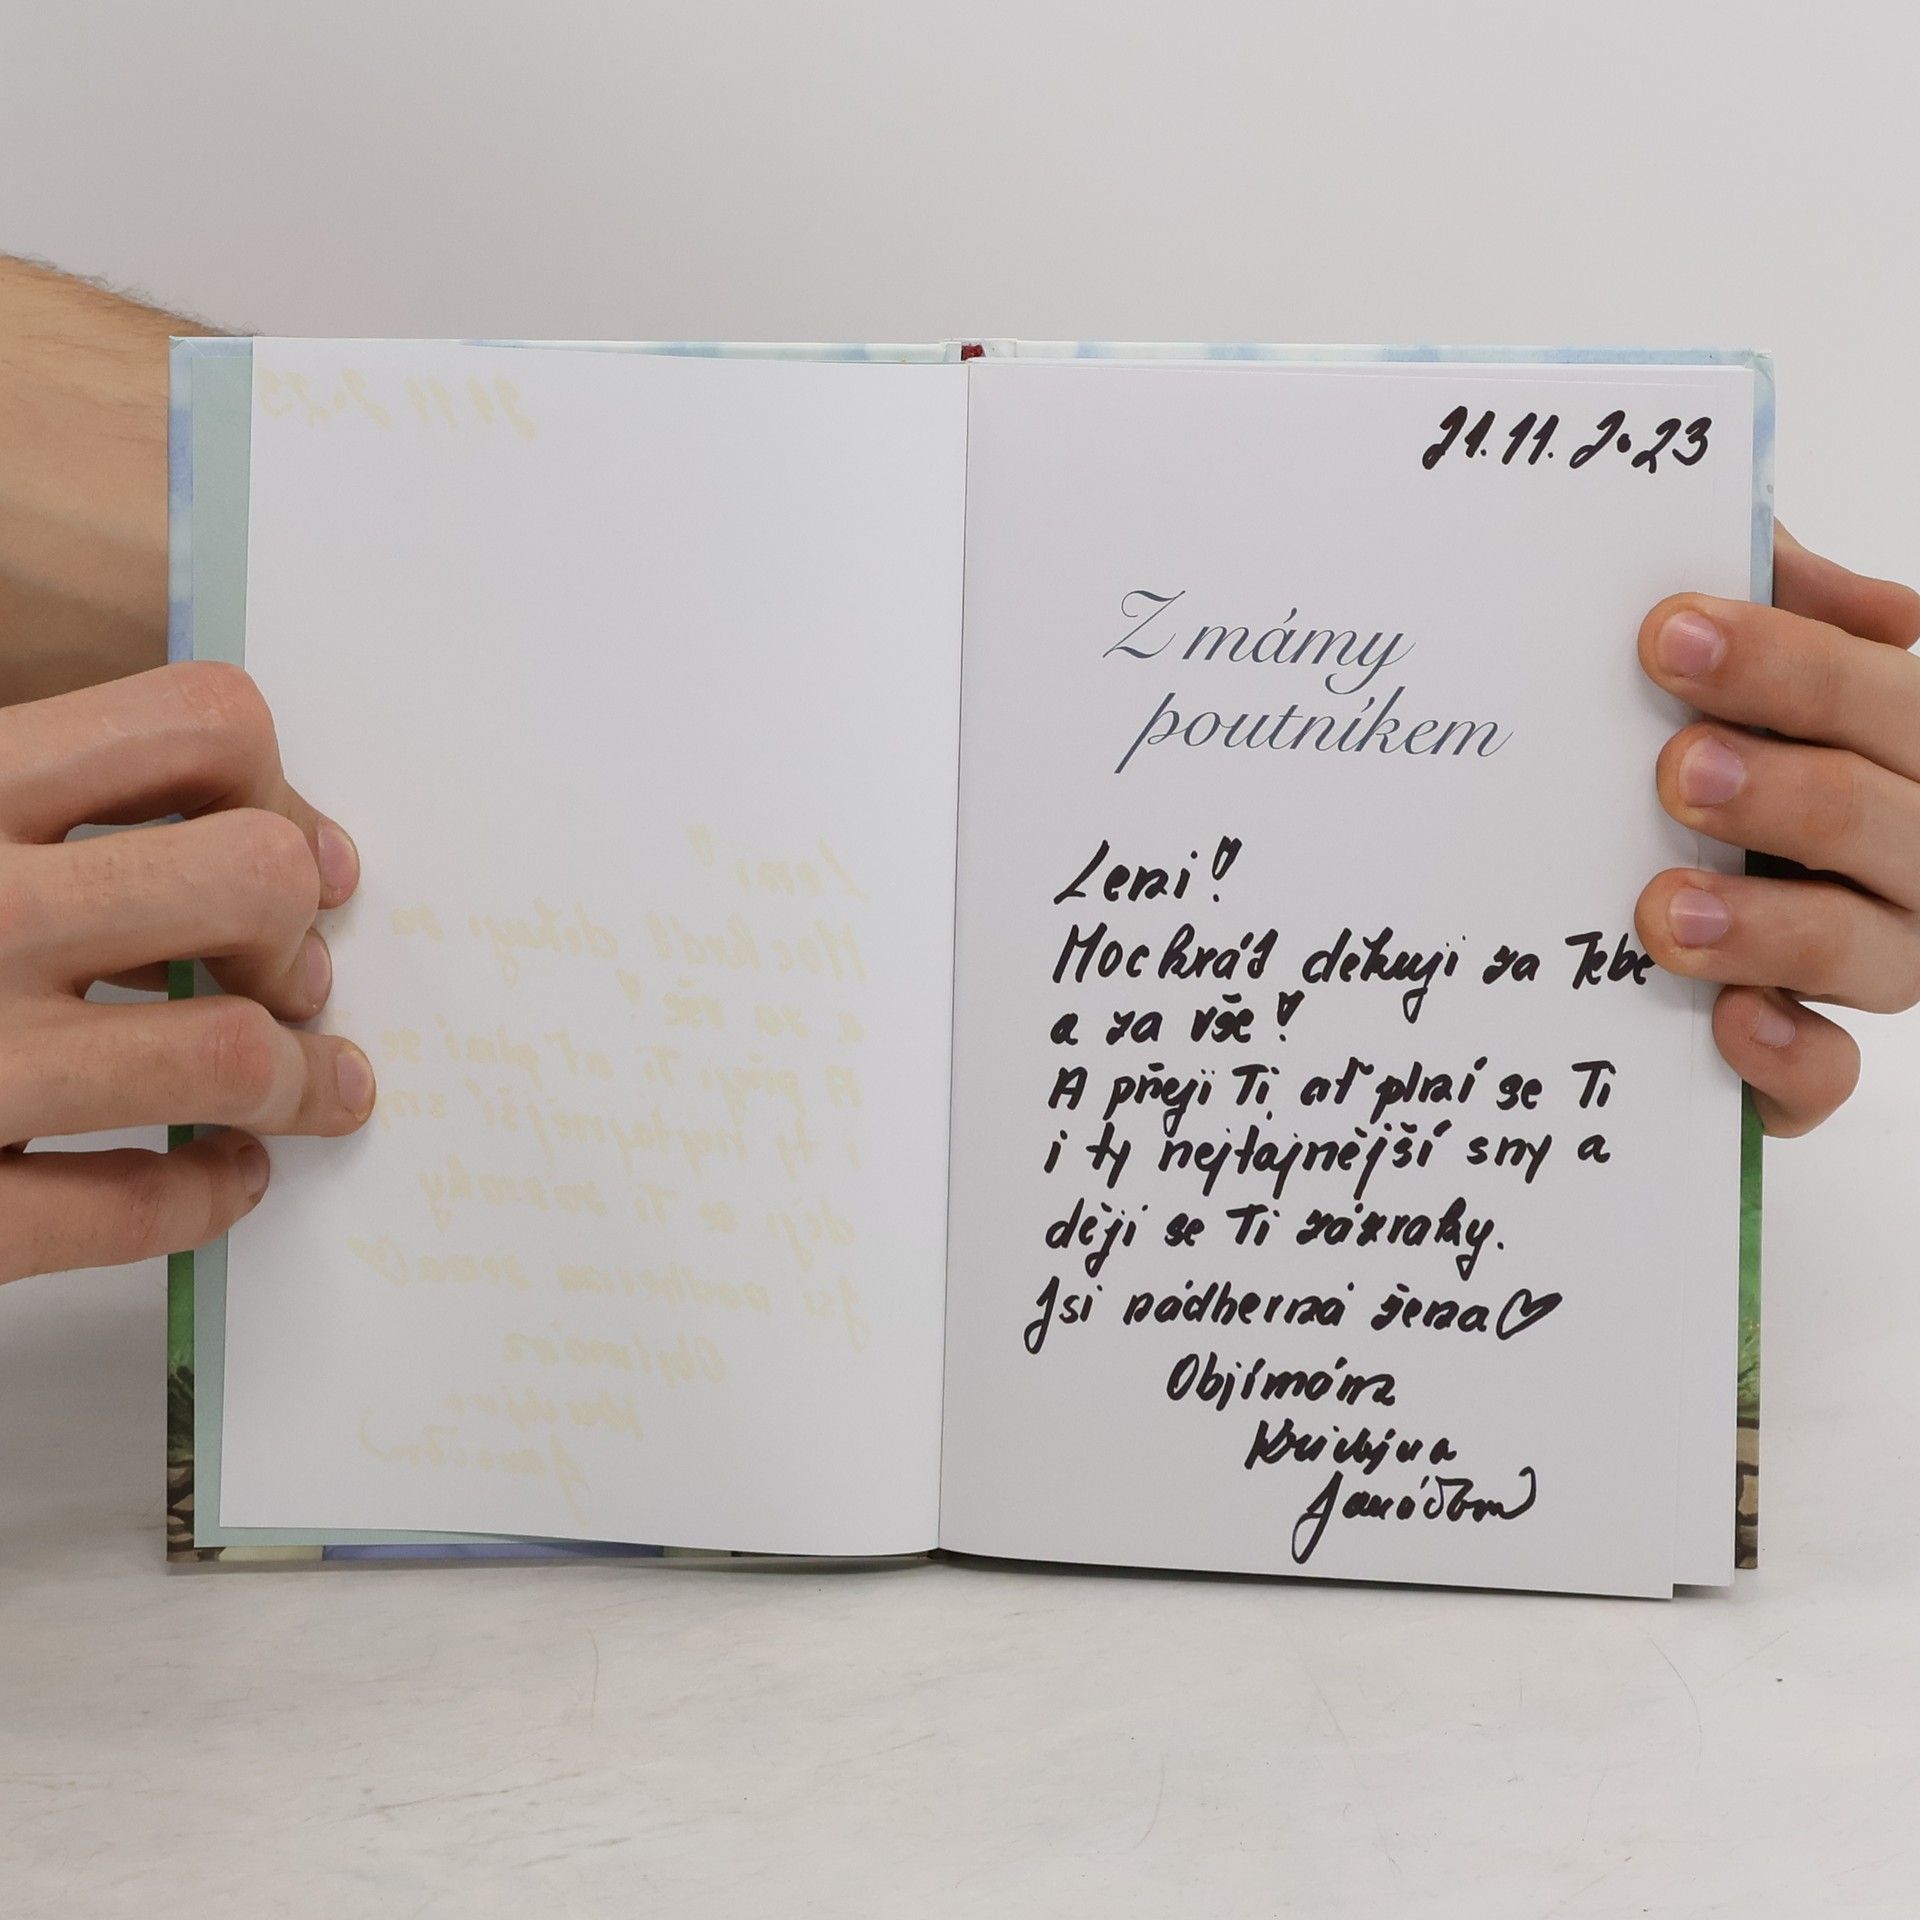 21.11.2023
Z mámy
poutníkem
Leni!
Mockrát děkuji za Tebe
a za vše!
A přeji Ti, ať plní se Ti
i ty nejtajnější sny a
ději se Ti zázraky.
Jsi nádherná žena♡
Objímám
Kristýna